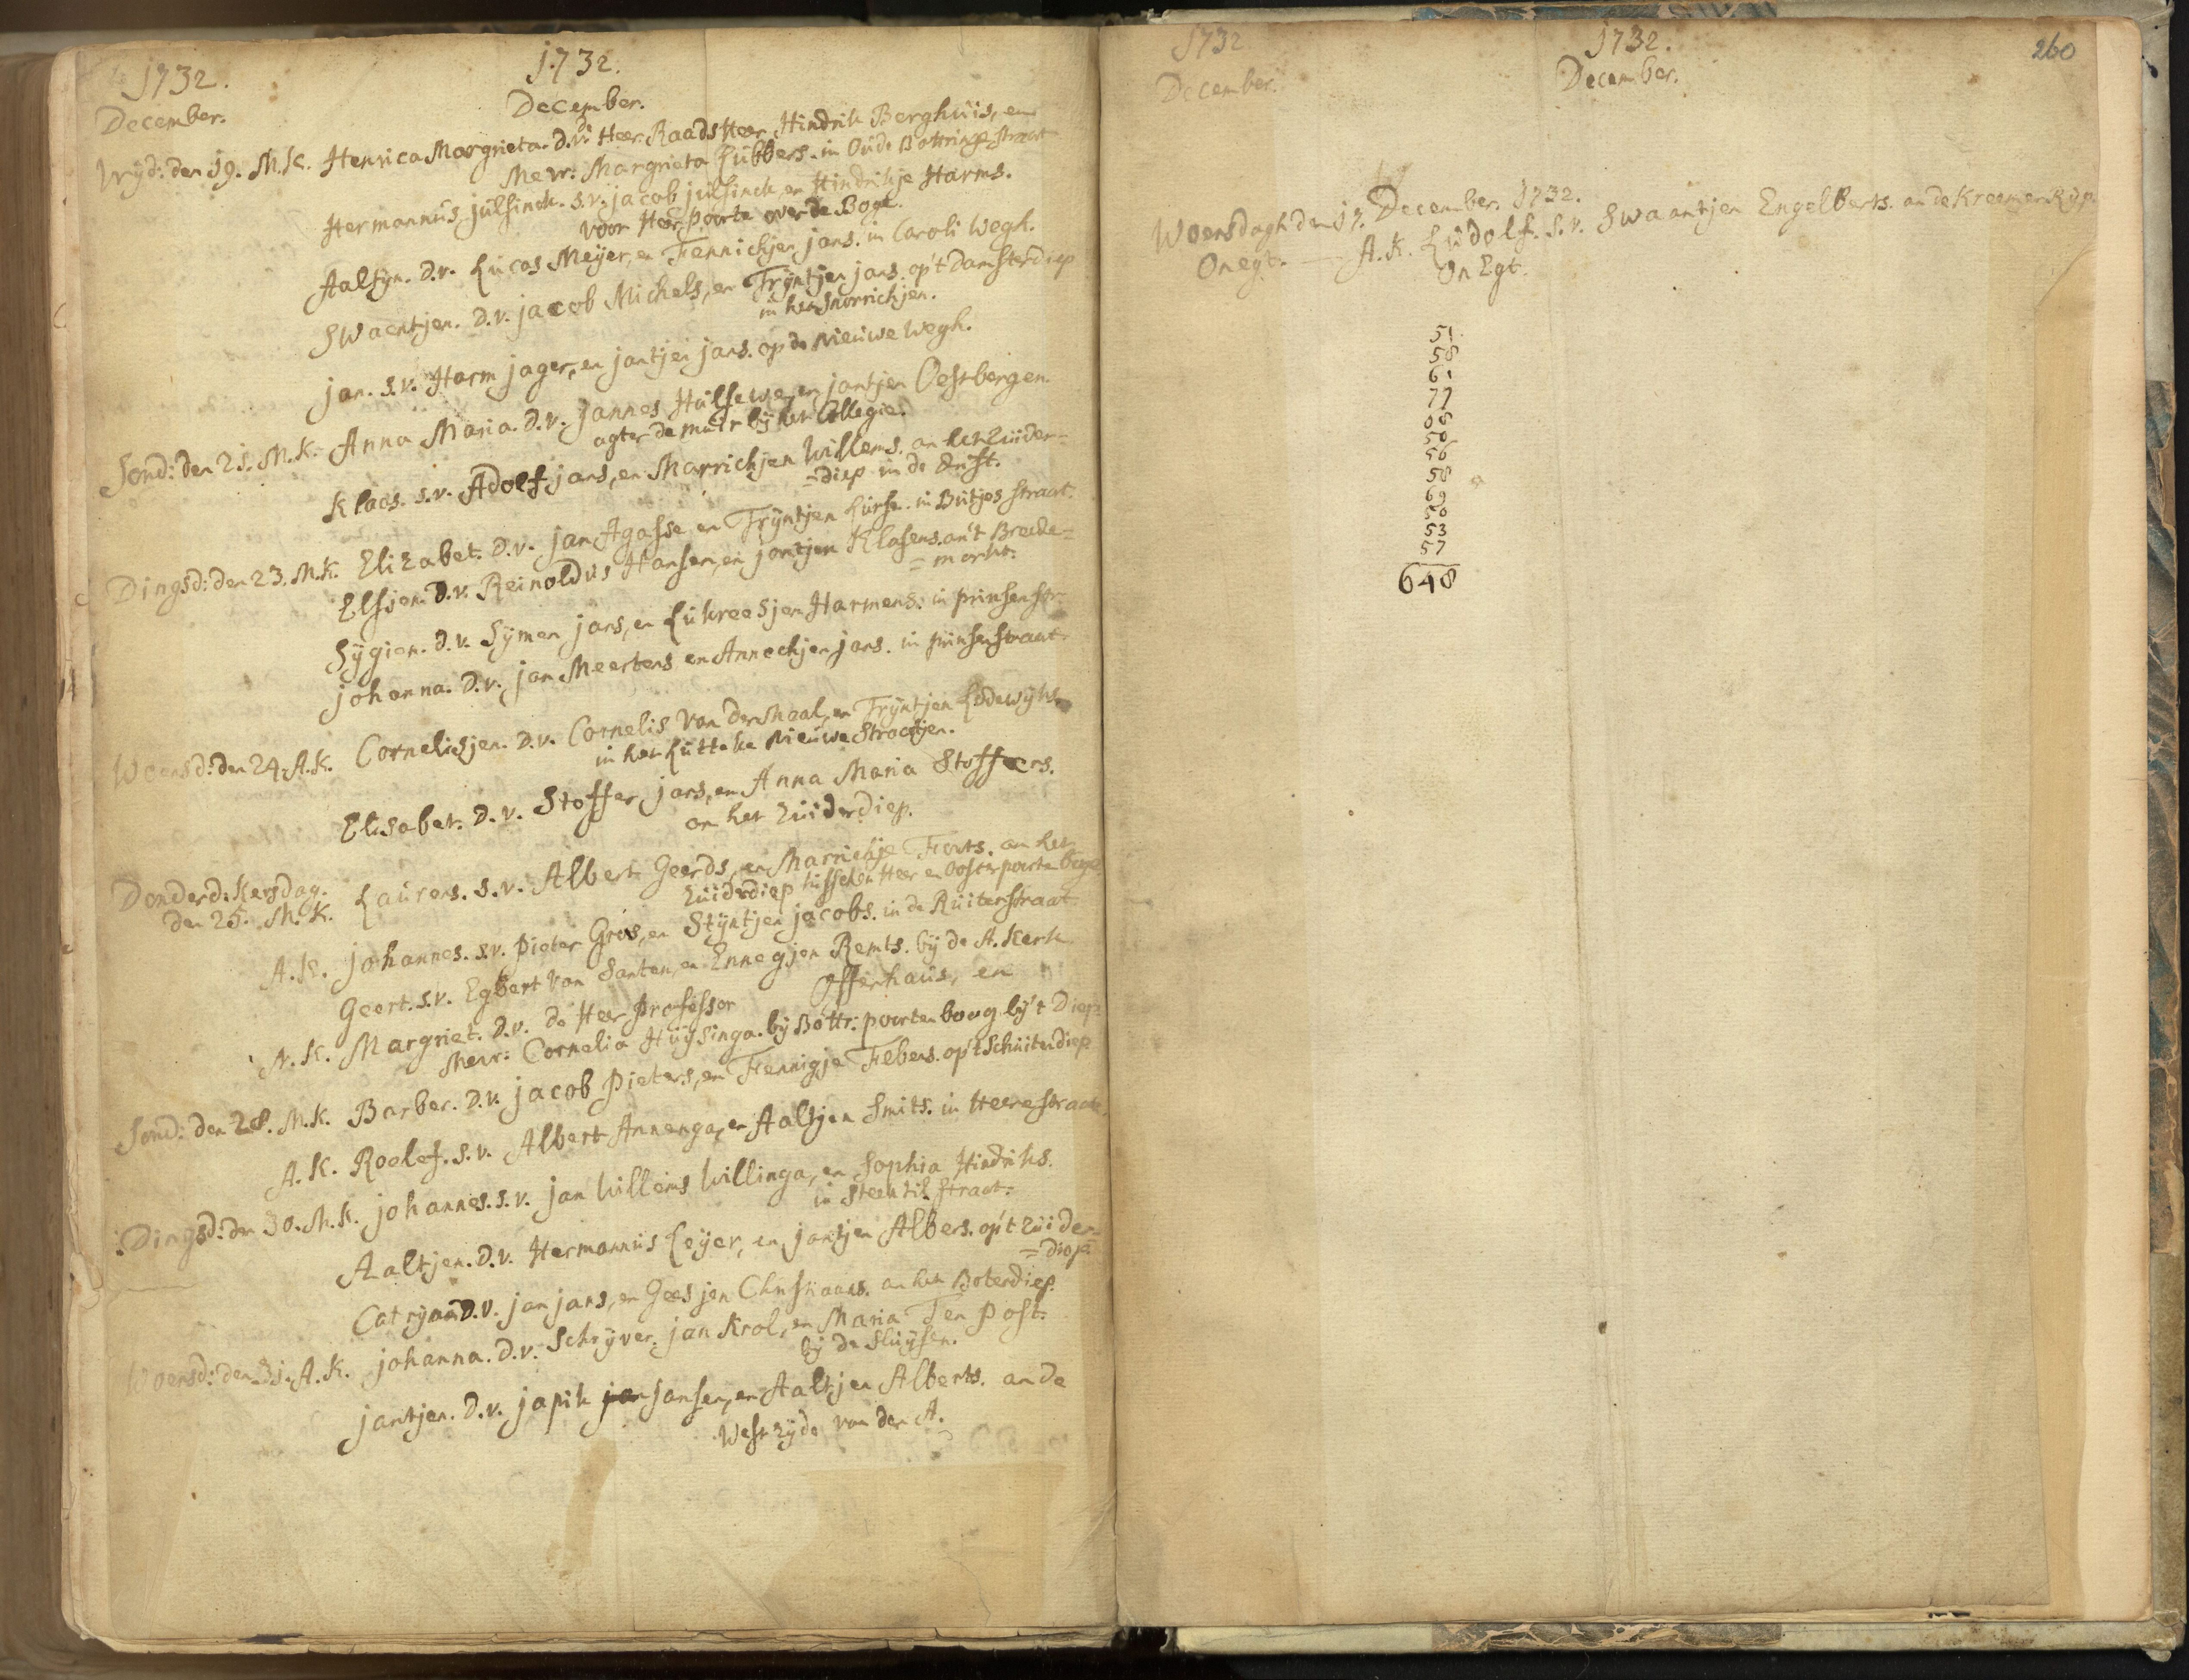 1732.
1732.
December.
December.
Vrijd: den 19. M.K. Henrica Margrieta. D.v. de Heer Raads Heer Hindrik Berghuis, en
Mevr: Margrieta Lubbers. in Oude Bottringe straat
Hermannus julsinck. s.v. jacob julsinck en Hindrikje Harms.
voor Heer Poorte over de Boge.
Aaltyn. D.v. Lucas Meijer, en Fennichjen jans. in Caroli Wegh.
Swaentjen. D.v. jacob Michels, en Trijntjen jans. op't Damsterdiep
in het Snorrichjen.
jan. s.v. Harm jager, en jantjen jans. op de Nieuwe Wegh.
Sond: den 21. M.K. Anna Maria. D.v. jannes Hulsewe, en jantjen Oestbergen.
agter de muir bij het Collegie.
Klaas. s.v. Adolf jans, en Marrichjen Willems. an het Zuider=
=diep in de Drift.
Dingsd: den 23. M.K. Elizabet. D.v. jan Agasse, en Trijntjen Lurse. in Butjes straat.
Elsjen. D.v. Reinoldus Hansen, en jantjen Klasens. an't Breede=
=markt.
Sygien. D.v. Sijmen jans, en Lukreesjen Harmens. in prinsen str:
johanna. D.v. jan Meertens en Annechjen jans. in prinsen straat.
Woensd: den 24. A.K. Cornelisjen. D.v. Cornelis van der Maal, en Trijntjen Lodewijks
in het Lutteke Nieuwe Straatjen.
Elisabet. D.v. Stoffer jans, en Anna Maria Stoffers.
an het Zuiderdiep.
Donderd: Kersdag.
den 25. M.K. Laurens. s.v. Albert Geerds, en Marrichje Forts. an het
Zuiderdiep tusschen Heer en Oosterpoorte boge
A.K. johannes. s.v. Pieter Gros, en Stijntjen jacobs. in de Ruiterstraat
Geert. s.v. Egbert van Santen, en Ennegjen Remts. bij de A. Kerk
N.K. Margriet. D.v. de Heer Professor Offerhaus, en
Mevr: Cornelia Huijsinga. bij Bottr: poorten boog bij't Diep
Sond: den 28. M.K. Barber. D.v. jacob Pieters, en Fennigje Febens. op't Schuitendiep
A.K. Roelef. s.v. Albert Annenga, en Aaltjen Smits. in Heere straate
Dingsd: den 30. M.K. johannes. s.v. jan Willems Willinga, en Sophia Hindriks.
in Steentil straat.
Aaltjen. D.v. Hermannus Leijer, en jantjen Albers. op't Zuider=
=diep
Catryna D.v. jan jans, en Geesjen Christiaans. an het Boterdiep.
Woensd: den 31. A.K. johanna. D.v. Schrijver jan Krol, en Maria Ten Post.
bij de Sluijsen.
jantjen. D.v. japik jansen, en Aaltjen Alberts. an de
West zijde van der A.
1732
1732.
260
December.
December.
Woensdagh den 17. December. 1732.
Onegt. A.K. Ludolf. s.v. Swaantjen Engelberts. an de Kreemer Rijp
On Egt.
51
58
61
77
08
50
56
58
69
50
53
57
648